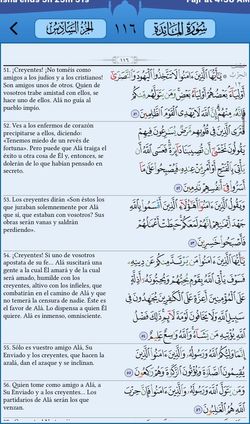 سُورَةُ المَائِدَةِ
١١٦
الجُزْءُ السَّادِسُ
١١٦
51. ¡Creyentes! ¡No toméis como
amigos a los judíos y a los cristianos!
Son amigos unos de otros. Quien de
vosotros trabe amistad con ellos, se
hace uno de ellos. Alá no guía al
pueblo impío.
۞ يَٰٓأَيُّهَا ٱلَّذِينَ ءَامَنُوا۟ لَا تَتَّخِذُوا۟ ٱلْيَهُودَ وَٱلنَّصَٰرَىٰٓ
أَوْلِيَآءَ ۘ بَعْضُهُمْ أَوْلِيَآءُ بَعْضٍ ۚ وَمَن يَتَوَلَّهُم مِّنكُمْ
فَإِنَّهُۥ مِنْهُمْ ۗ إِنَّ ٱللَّهَ لَا يَهْدِى ٱلْقَوْمَ ٱلظَّٰلِمِينَ ٥١
52. Ves a los enfermos de corazón
precipitarse a ellos, diciendo:
«Tenemos miedo de un revés de
fortuna». Pero puede que Alá traiga el
éxito u otra cosa de Él y, entonces, se
dolerán de lo que habían pensado en
secreto.
فَتَرَى ٱلَّذِينَ فِى قُلُوبِهِم مَّرَضٌ يُسَٰرِعُونَ فِيهِمْ
يَقُولُونَ نَخْشَىٰٓ أَن تُصِيبَنَا دَآئِرَةٌ ۚ فَعَسَى ٱللَّهُ أَن
يَأْتِىَ بِٱلْفَتْحِ أَوْ أَمْرٍ مِّنْ عِندِهِۦ فَيُصْبِحُوا۟ عَلَىٰ مَآ أَسَرُّوا۟
فِىٓ أَنفُسِهِمْ نَٰدِمِينَ ٥٢
53. Los creyentes dirán «¿Son éstos los
que juraban solemnemente por Alá
que sí, que estaban con vosotros? Sus
obras serán vanas y saldrán
perdiendo».
وَيَقُولُ ٱلَّذِينَ ءَامَنُوٓا۟ أَهَٰٓؤُلَآءِ ٱلَّذِينَ أَقْسَمُوا۟ بِٱللَّهِ
جَهْدَ أَيْمَٰنِهِمْ ۙ إِنَّهُمْ لَمَعَكُمْ ۚ حَبِطَتْ أَعْمَٰلُهُمْ
فَأَصْبَحُوا۟ خَٰسِرِينَ ٥٣
54. ¡Creyentes! Si uno de vosotros
apostata de su fe... Alá suscitará una
gente a la cual Él amará y de la cual
será amado, humilde con los
creyentes, altivo con los infieles, que
combatirán en el camino de Alá y que
no temerá la censura de nadie. Éste es
el favor de Alá. Lo dispensa a quien Él
quiere. Alá es inmenso, omnisciente.
يَٰٓأَيُّهَا ٱلَّذِينَ ءَامَنُوا۟ مَن يَرْتَدَّ مِنكُمْ عَن دِينِهِۦ
فَسَوْفَ يَأْتِى ٱللَّهُ بِقَوْمٍ يُحِبُّهُمْ وَيُحِبُّونَهُۥٓ أَذِلَّةٍ
عَلَى ٱلْمُؤْمِنِينَ أَعِزَّةٍ عَلَى ٱلْكَٰفِرِينَ يُجَٰهِدُونَ فِى
سَبِيلِ ٱللَّهِ وَلَا يَخَافُونَ لَوْمَةَ لَآئِمٍ ۚ ذَٰلِكَ فَضْلُ
ٱللَّهِ يُؤْتِيهِ مَن يَشَآءُ ۚ وَٱللَّهُ وَٰسِعٌ عَلِيمٌ ٥٤
55. Sólo es vuestro amigo Alá, Su
Enviado y los creyentes, que hacen la
azalá, dan el azaque y se inclinan.
إِنَّمَا وَلِيُّكُمُ ٱللَّهُ وَرَسُولُهُۥ وَٱلَّذِينَ ءَامَنُوا۟ ٱلَّذِينَ يُقِيمُونَ
ٱلصَّلَوٰةَ وَيُؤْتُونَ ٱلزَّكَوٰةَ وَهُمْ رَٰكِعُونَ ٥٥
56. Quien tome como amigo a Alá, a
Su Enviado y a los creyentes... Los
partidarios de Alá serán los que
venzan.
وَمَن يَتَوَلَّ ٱللَّهَ وَرَسُولَهُۥ وَٱلَّذِينَ ءَامَنُوا۟ فَإِنَّ حِزْبَ
ٱللَّهِ هُمُ ٱلْغَٰلِبُونَ ٥٦